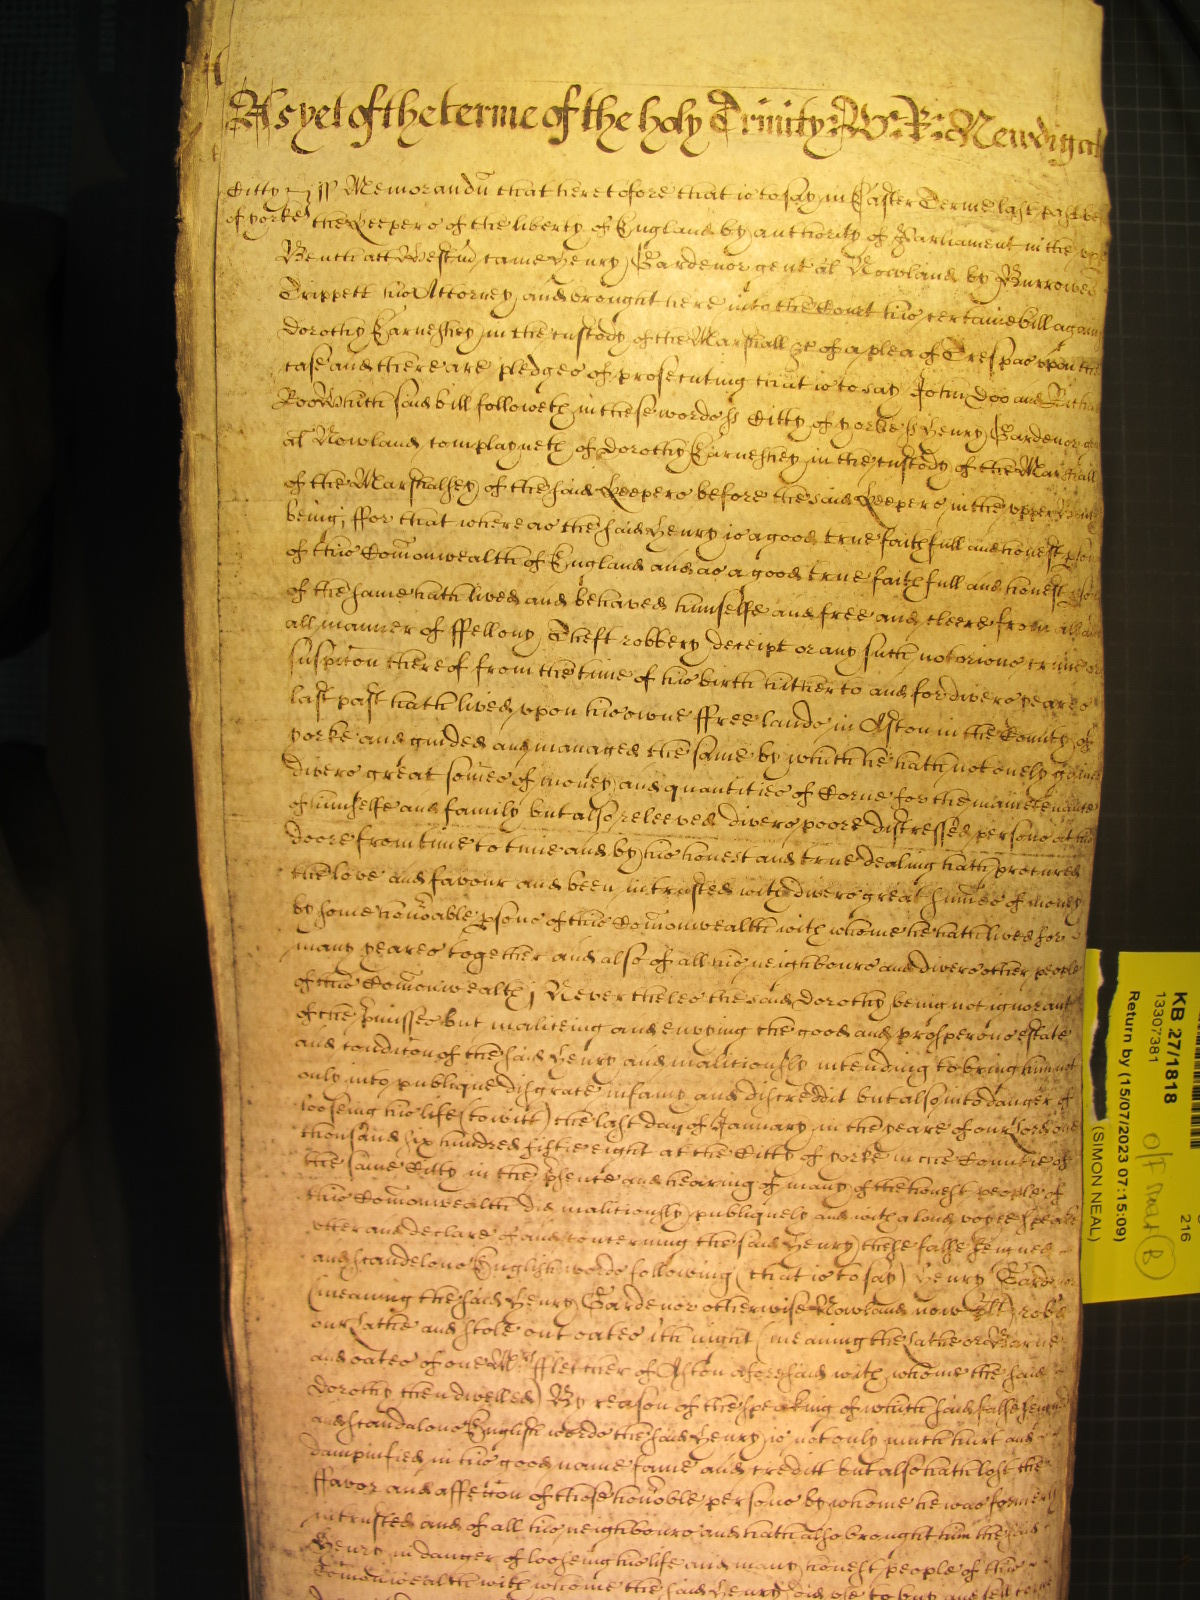 As yet of the terme of the holy Trinity: W: R: Newdigat
Citty ss Memorandũ that heretofore that is to say in Easter Terme last past be
of yorke the Keepers of the liberty of England by authority of Parliament in the upp
Bench att Westm̃ came Henry Gardenor gent al Nowland by Burrowes
Trippett his Attorney and brought here into the Court his certaine bill again
Dorothy Earneshey in the custody of the Marshall &c of a plea of Trespas upon the
case and there are pledges of prosecuting that is to say John Doo and Rich
Roo Which said bill followeth in these words ss Citty of yorke ss Henry Gardenor
al Nowland complayneth of Dorothy Earneshey in the custody of the Marshall
of the Marshalsey of the said Keepers before the said Keepers in the upper Bench
being; ffor that whereas the said Henry is a good true faithfull and honest pson
of this Com̃onwealth of England and as a good true faithfull and honest pson
of the same hath lived and behaved himselfe and free and cleere from all
all manner of ffellony Theft robbery deceipt or any such notorious crime or
suspicon thereof from the time of his birth hitherto and for divers yeares
last past hath lived upon his owne ffree lands in Aston in the County of
yorke and guided and managed the same by which he hath not onely gained
divers great som̃es of money and quantities of Corne for the maintenance
of himselfe and family but also releeved divers poore distressed persons at his
doore from time to time and by his honest and true dealing hath procured
the love and favour and been intrusted with divers great sum̃es of money
by some hono̴able psons of this Com̃onwealth with whome he hath lived for
many yeares together and also of all his neighbours and divers other people
of this Com̃onwealth; Nevertheles the said Dorothy being not ignorant
of the pmisses but maliceing and envying the good and prosperous estate
and condicon of the said Henry and malitiously intending to bring him not
only into publique disgrace infamy and discreddit but also into danger of
looseing his life (to witt) the last day of January in the yeare of our Lord one
thousand six hundred fiftie eight at the Citty of yorke in the Countie of
the same Citty in the psence and heareing of many of the honest people of
this Com̃onwealth did malitiously publiquely and with a loud voyce speake
utter and declare of and concerning the said Henry these false feigned
and scandelous English words following (that is to say) Henry Gardenor
(meaning the said Henry Gardenor otherwise Nowland now plt) rob'd
our Lathe and stole out oates ith night (meaning the Lathe or Barne
and oates of one Mr ffletcher of Aston aforesaid with whome the said
Dorothy then dwelled) By reason of the speaking of which said false feigned
and scandalous English words the said Henry is not only much hurt and
dampnified in his good name fame and creditt but also hath lost the
ffavor and affeccon of those honoble persons by whome he was formerly
intrusted and of all his neighbours and hath also brought him the said
Henry in danger of looseing his life and many honest people of this
Com̃onwealth with whome the said Henry did use to buy and sell
KB 27/1818
13307381
216
Return by (15/07/2023 07:15:09)
(SIMON NEAL)